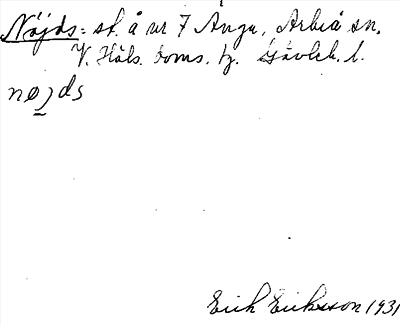 Nöjds: st. å nr 7 Änga, Arbrå sn.
V. Häls. doms. tg. Gävleb. l.
nøjds
Erik Eriksson 1931